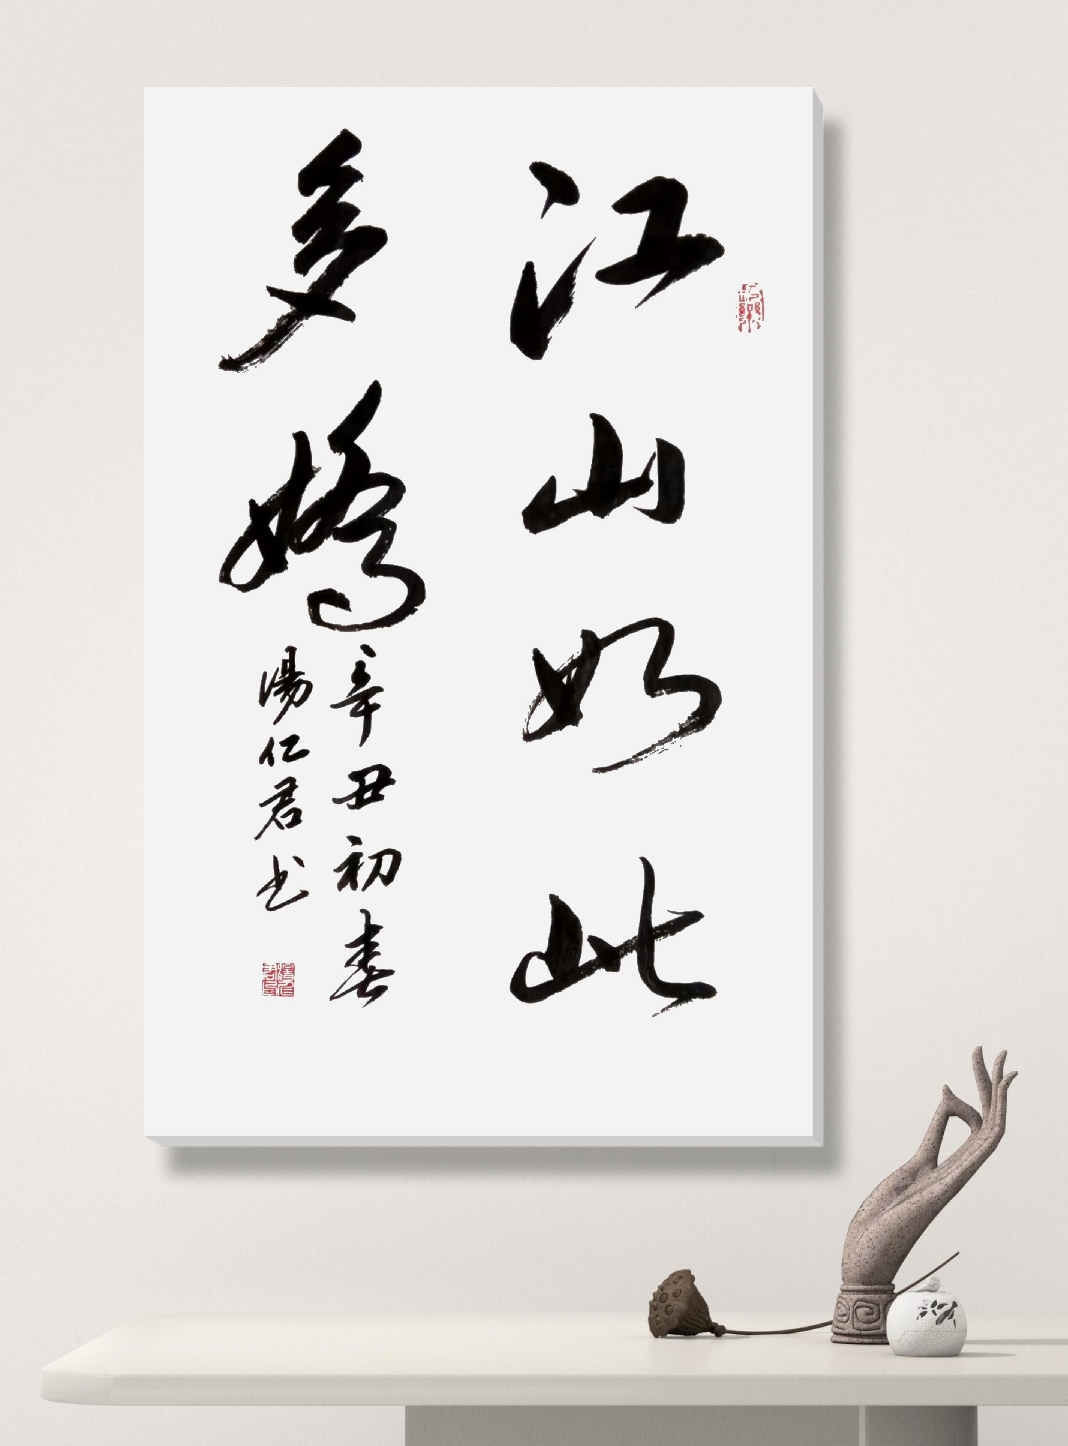 江山如此
多娇
辛丑初春
汤仁君书